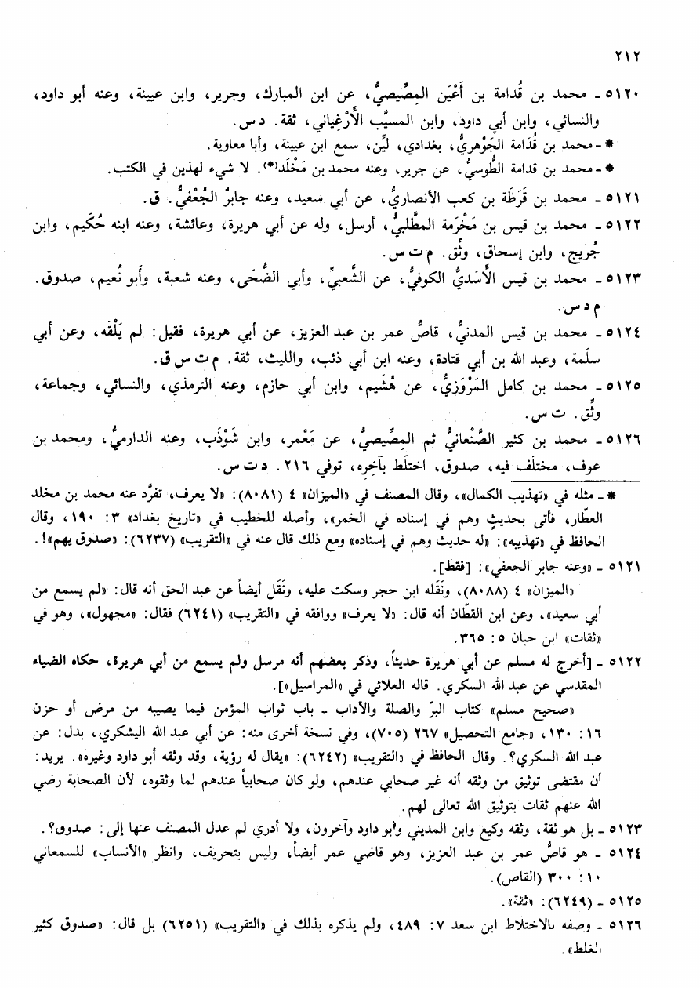 ٢١٢
٥١٢٠ ـ محمد بن قُدامة بن أَعْيَن المِصِّيصيُّ، عن ابن المبارك، وجرير، وابن عيينة، وعنه أبو داود،
والنسائي، وابن أبي داود، وابن المسيَّب الأَرْغِياني، ثقة. د س.
* ـ محمد بن قُدَامة الجَوْهريُّ، بغدادي، ليِّن، سمع ابن عيينة، وأبا معاوية.
* ـ محمد بن قدامة الطُّوسيُّ، عن جرير، وعنه محمد بن مَخْلَد(*). لا شيء لهذين في الكتب.
٥١٢١ ـ محمد بن قَرَظَة بن كعب الأنصاريُّ، عن أبي سعيد، وعنه جابرٌ الجُعْفيُّ. ق.
٥١٢٢ ـ محمد بن قيس بن مَخْرَمة المطَّلبيُّ، أرسل، وله عن أبي هريرة، وعائشة، وعنه ابنه حُكَيم، وابن
جُريج، وابن إسحاق، وثِّق. م ت س.
٥١٢٣ ـ محمد بن قيس الأَسَديُّ الكوفيُّ، عن الشَّعبيِّ، وأبي الضُّحَى، وعنه شعبة، وأبو نُعيم، صدوق.
م د س.
٥١٢٤ ـ محمد بن قيس المدنيُّ، قاصُّ عمر بن عبد العزيز، عن أبي هريرة، فقيل: لم يَلْقَه، وعن أبي
سلَمة، وعبد الله بن أبي قتادة، وعنه ابن أبي ذئب، والليث، ثقة. م ت س ق.
٥١٢٥ ـ محمد بن كامل المَرْوَزيُّ، عن هُشَيم، وابن أبي حازم، وعنه الترمذي، والنسائي، وجماعة،
وثِّق. ت س.
٥١٢٦ ـ محمد بن كثير الصَّنْعانيُّ ثم المِصِّيصيُّ، عن مَعْمَر، وابن شَوْذَب، وعنه الدارميُّ، ومحمد بن
عوف، مختلَف فيه، صدوق، اختلَط بآخِره، توفي ٢١٦. د ت س.
* ـ مثله في «تهذيب الكمال»، وقال المصنف في «الميزان» ٤ (٨٠٨١): «لا يعرف، تفرَّد عنه محمد بن مخلد
العطار، فأتى بحديثٍ وهم في إسناده في الخمر»، وأصله للخطيب في «تاريخ بغداد» ٣: ١٩٠، وقال
الحافظ في «تهذيبه»: «له حديث وهم في إسناده» ومع ذلك قال عنه في «التقريب» (٦٢٣٧): «صدوق يهم»!.
٥١٢١ ـ «وعنه جابر الجعفي»: [فقط].
«الميزان» ٤ (٨٠٨٨)، ونَقَله ابن حجر وسكت عليه، ونَقَل أيضاً عن عبد الحق أنه قال: «لم يسمع من
أبي سعيد»، وعن ابن القطان أنه قال: «لا يعرف» ووافقه في «التقريب» (٦٢٤١) فقال: «مجهول»، وهو في
«ثقات» ابن حبان ٥: ٣٦٥.
٥١٢٢ ـ [أخرج له مسلم عن أبي هريرة حديثاً، وذكر بعضهم أنه مرسل ولم يسمع من أبي هريرة، حكاه الضياء
المقدسي عن عبد الله السكري. قاله العلائي في «المراسيل»].
«صحيح مسلم» كتاب البرّ والصلة والآداب ـ باب ثواب المؤمن فيما يصيبه من مرض أو حزن
١٦: ١٣٠، «جامع التحصيل» ٢٦٧ (٧٠٥)، وفي نسخة أخرى منه: عن أبي عبد الله اليشكري، بدل: عن
عبد الله السكري؟. وقال الحافظ في «التقريب» (٦٢٤٢): «يقال له رؤية، وقد وثقه أبو داود وغيره». يريد:
أن مقتضى توثيق من وثقه أنه غير صحابي عندهم، ولو كان صحابياً عندهم لما وثقوه، لأن الصحابة رضي
الله عنهم ثقات بتوثيق الله تعالى لهم.
٥١٢٣ ـ بل هو ثقة، وثقه وكيع وابن المديني وأبو داود وآخرون، ولا أدري لم عدل المصنف عنها إلى: صدوق؟.
٥١٢٤ ـ هو قاصُّ عمر بن عبد العزيز، وهو قاضي عمر أيضاً، وليس بتحريف، وانظر «الأنساب» للسمعاني
١٠: ٣٠٠ (القاص).
٥١٢٥ ـ (٦٢٤٩): «ثقة».
٥١٢٦ ـ وصفه بالاختلاط ابن سعد ٧: ٤٨٩، ولم يذكره بذلك في «التقريب» (٦٢٥١) بل قال: «صدوق كثير
الغلط».